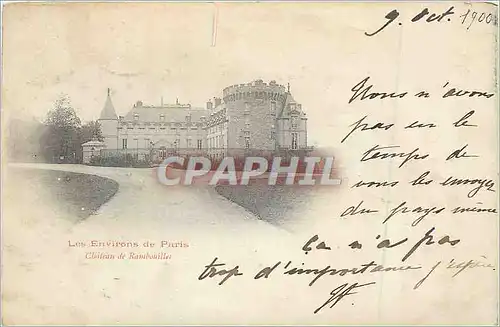 9 Oct. 1900
Nous n'avons
pas eu le
temps de
vous les envoyer
du pays même
CPARAMA.COM
Les Environs de Paris
Château de Rambouillet
Ça n'a pas
trop d'importance j'espère